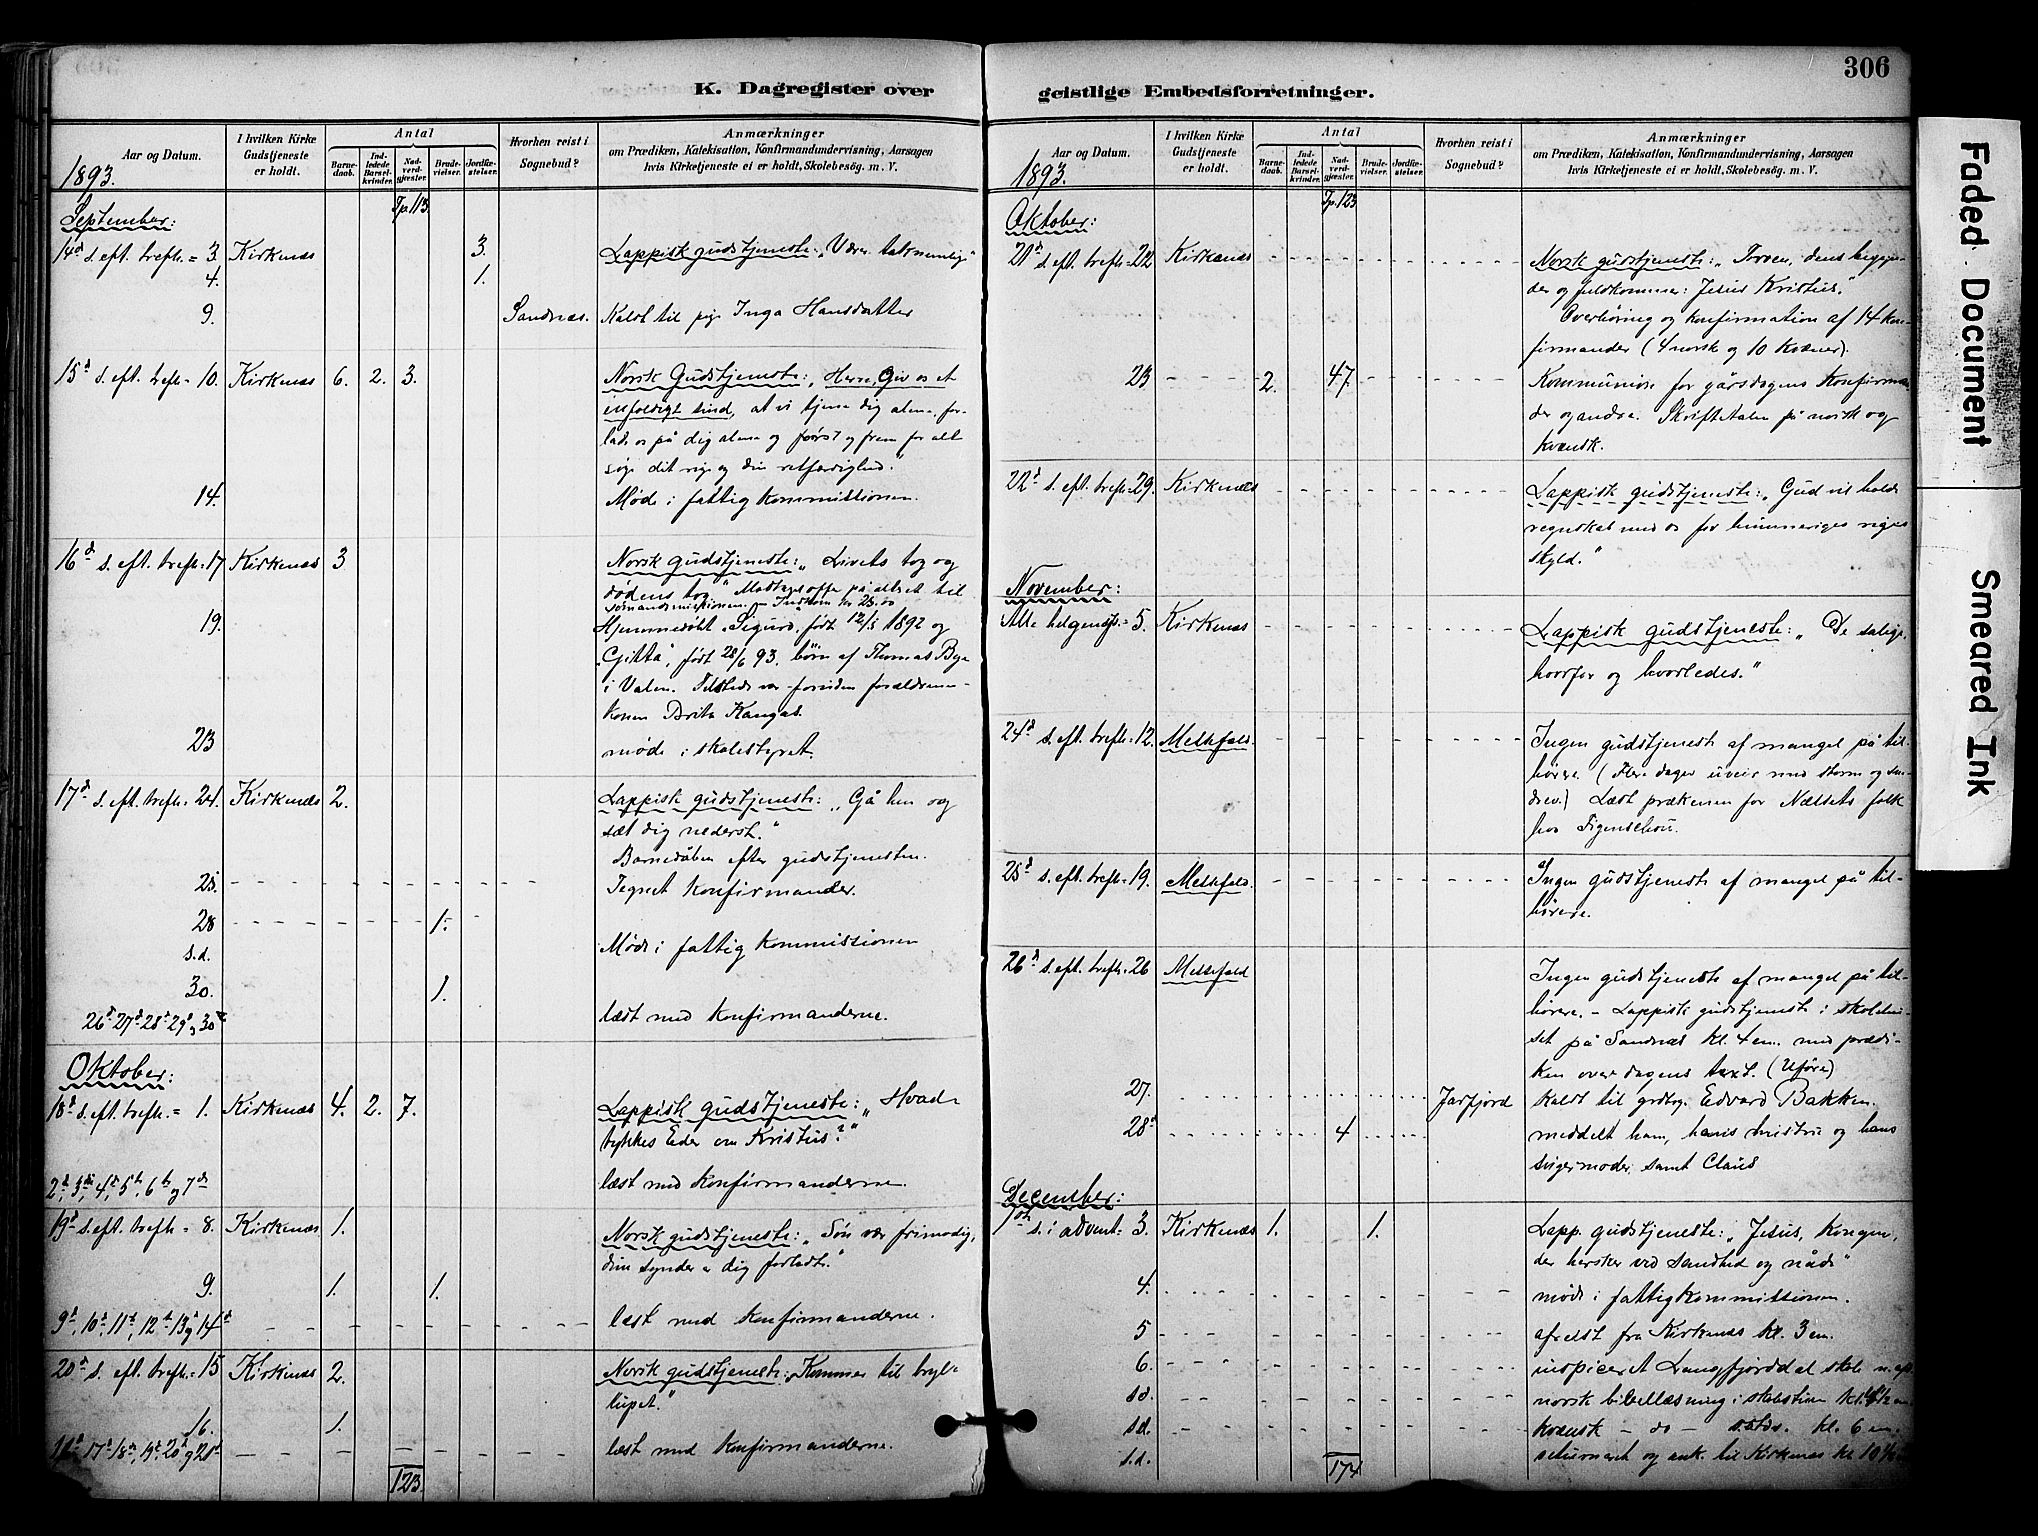 306
K. Dagregister over geistlige Embedsforretninger.
Aar og Datum.
1893.
I hvilken Kirke Gudstjeneste er holdt.
Antal
Barnedaab.
Indledede Barselkvinder.
Nadverdgjæster.
Brudevielser.
Jordfæstelser.
Hvorhen reist i Sognebud?
Anmærkninger
om Prædiken, Katekisation, Konfirmandundervisning, Aarsagen
hvis Kirketjeneste ei er holdt, Skolebesøg. m. V.
Tp. 113.
September:
14d s. eft. trefh. = 3. Kirkenæs 3. Lappisk gudstjeneste: „Værer taknemlige"
4. 1.
9. Sandnæs. Kaldt til pige Inga Hansdatter
15d s. eft. trefh = 10. Kirkenæs 6. 2. 3. Norsk Gudstjeneste: „Herre, Giv os et
enfoldigt sind, at vi tjene dig alene, for-
lade os på dig alene og først og frem for alt
søge dit rige og din retfærdighed."
14. Møde i fattigkommissionen.
16d s. eft. trefh = 17 Kirkenæs 3 Norsk gudstjeneste: „Livets tog og
dødens tog" Modtages offer på altret til
sømandsmissionen. Indkom kr 25.00
19. Hjemmedøbt „Sigurd, født 12/5 1892 og
„Gitta", født 28/6 93. børn af Thomas Bye
i Valen. Tilstede var foruden forældrene
konen Brita Kangas.
23 møde i skolestyret.
17d s. eft. trefh = 24. Kirkenæs 2. Lappisk gudstjeneste: „Gå hen og
sæt dig nederst."
Barnedåben efter gudstjenesten.
25. Tegnet konfirmander.
28 1.
s.d. Møde i fattigkommissionen
30. 1.
26d 27d 28d 29d og 30d læst med konfirmanderne.
Oktober:
18d s. eft. trefh. = 1. Kirkenæs 4. 2. 7. Lappisk gudstjeneste: „Hvad
tykkes Eder om Kristus?"
2d, 3die, 4d, 5te, 6te og 7de læst med konfirmanderne.
19d s. eft. trefh = 8. Kirkenæs 1. Norsk gudstjeneste: „Søn vær frimodig,
dine synder er dig forladte."
9. 1. 1.
9d, 10d, 11te, 12te 13d og 14d læst med konfirmanderne.
20d s. eft. trefh. = 15 Kirkenæs 2. Norsk gudstjeneste: „Kommer til bryl-
lupet."
16. 1.
17d 18d, 19d, 20d og 21d læst med konfirmanderne.
123.
Aar og Datum.
1893.
I hvilken Kirke Gudstjeneste er holdt.
Antal
Barnedaab.
Indledede Barselkvinder.
Nadverdgjæster.
Brudevielser.
Jordfæstelser.
Hvorhen reist i Sognebud?
Anmærkninger
om Prædiken, Katekisation, Konfirmandundervisning, Aarsagen
hvis Kirketjeneste ei er holdt, Skolebesøg. m. V.
Tp. 123
Oktober:
21d s. eft. trefh = 22 Kirkenæs Norsk gudstjeneste: „Troen, dens begyn-
der og fuldkommer: Jesus Kristus."
Overhøring og konfirmation af 14 kon-
firmander (4 norsk og 10 kvæner).
23 2. 47. Kommunion for gårsdagens konfirman-
der og andre. Skriftetalen på norsk og
kvænsk.
22d s. eft. trefh = 29. Kirkenæs Lappisk gudstjeneste: „Gud vil holde
regnskab med os for himmeriges riges
skyld."
November:
Alle helgensds. = 5. Kirkenæs Lappisk gudstjeneste: „De salige,
hvorfor og hvorledes."
24d s. eft. trefh = 12. Melkefold. Ingen gudstjeneste af mangel på til-
hørere. (Flere dages uveir med storm og sne-
drev.) Læst prækenen for Næssets folk
hos Figenschou.
25d s. eft. trefh = 19. Melkefold. Ingen gudstjeneste af mangel på til-
hørere.
26d s. eft. trefh = 26 Melkefold Ingen gudstjeneste af mangel på til-
hørere. - Lappisk gudstjeneste i skolehu-
set på Sandnæs kl. 4 em. med prædi-
ken over dagens text. (Uføre)
27. Jarfjord Kaldt til grdbrg. Edvard Bakken.
28d 4 meddelt ham, hans hustru og hans
svigermoder samt Claus
December:
1ste s. i advent = 3. Kirkenæs 1. 1. Lapp. gudstjeneste: „Jesus, kongen,
der hersker ved sandhed og nåde"
4. møde i fattigkommissionen.
5 afreist fra Kirkenæs kl. 3 em.
6. inspiceret Langfjorddal skole
sd. norsk bibellæsning i skolestuen kl. 4½ em
sd. kvænsk - do - kl. 6 em.
s.d. returneret og ank. til Kirkenæs kl 10½
174
Faded Document
Smeared Ink